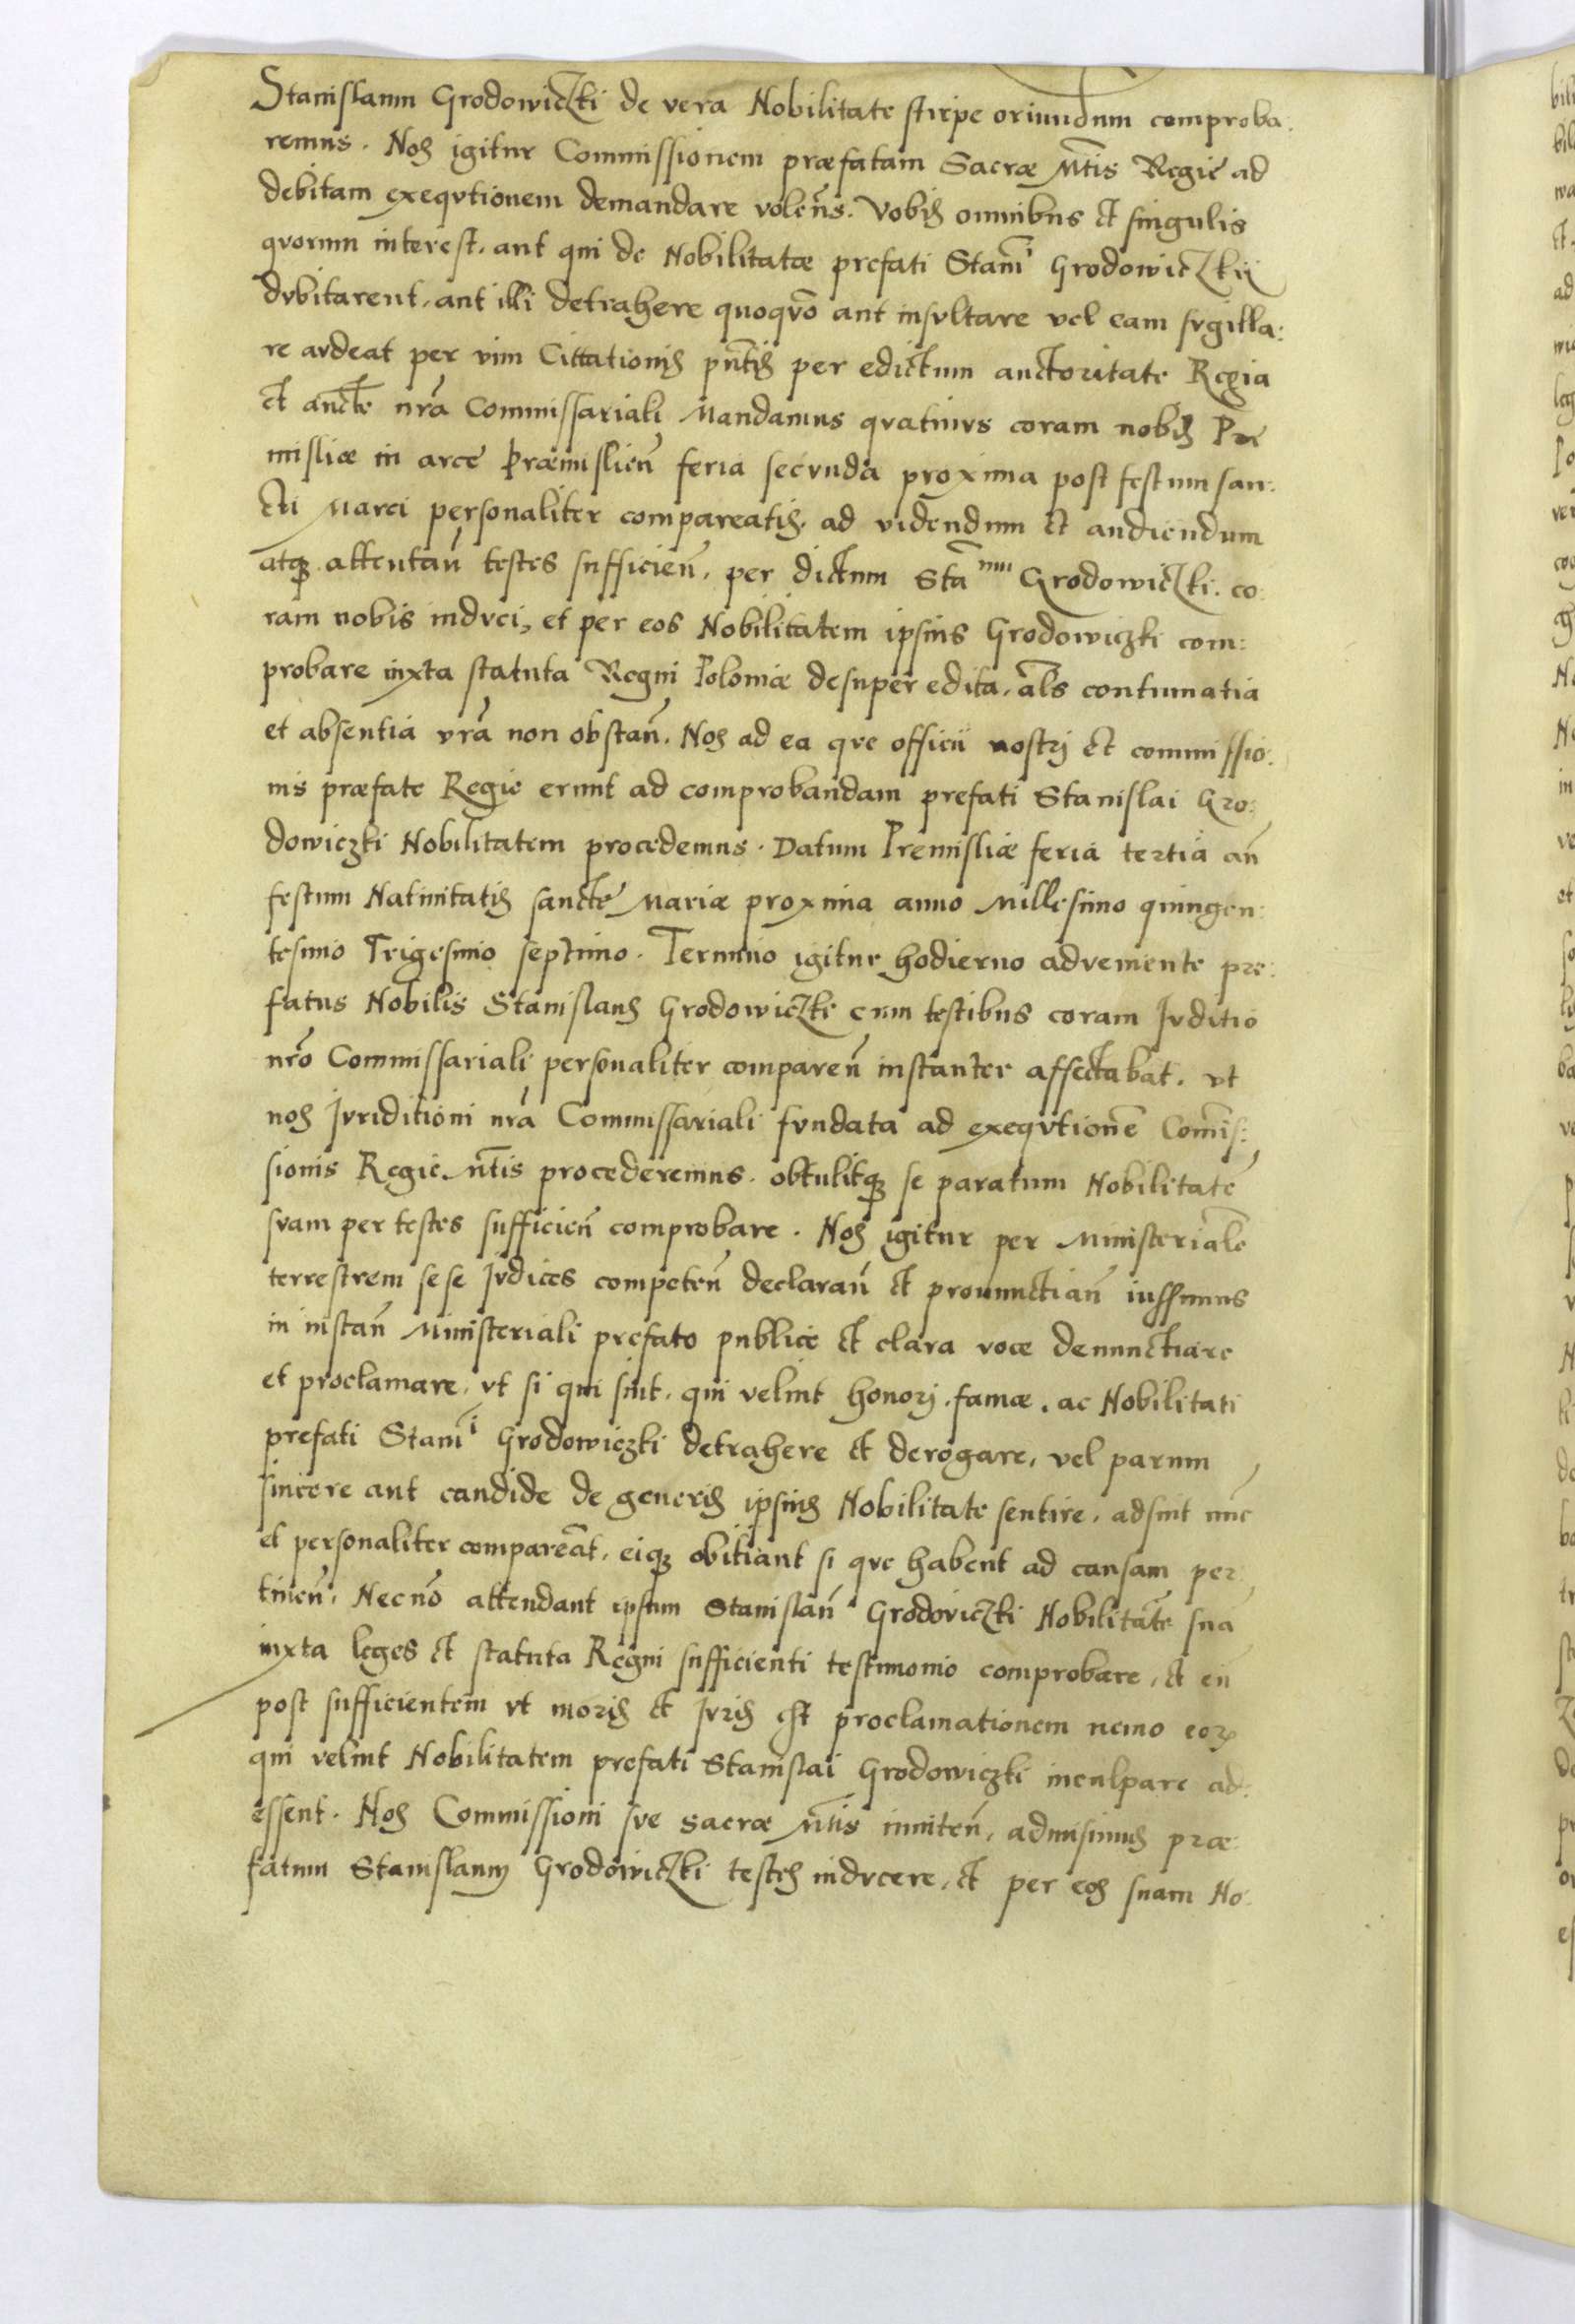 Stanislaum Grodowiczki de vera Nobilitate stirpe oriundum comproba:
remus. Nos igitur Commissionem præfatam Sacræ Mtis Regiæ ad
debitam exeqvtionem demandare volen̄s. Vobis omnibus et singulis
qvorum interest. aut qui de Nobilitatæ prefati Stanī Grodowiczkij
dvbitarent, aut illi detrahere quoqvō aut insvltare vel eam svgilla:
re avdeat per vim Cittationis pn̄tis per edictum auctoritate Regia
et aucte nrā Commissariali Mandamus qvatinvs coram nobis Præ
misliæ in arce Præmislien̄ feria secvnda proxima post festum san:
cti Marci personaliter compareatis. ad videndum et audiendum
atq attentan̄ testes sufficien̄. per dictum Stānum Grodowiczki. co:
ram nobis indvci, et per eos Nobilitatem ipsius Grodowiczki com:
probare iuxta statuta Regni Poloniæ desuper edita. āls contumatia
et absentia vrā non obstan̄. Nos ad ea qve officii nostrj et commissio:
nis præfate Regie erunt ad comprobandam prefati Stanislai Gro:
dowiczki Nobilitatem procedemus. Datum Premisliæ feria tertia an̄
festum Natiuitatis sancte Mariæ proxima anno Millesimo quingen:
tesimo Trigesimo septimo. Termino igitur hodierno adveniente pre:
fatus Nobilis Stanislaus Grodowiczki cum testibus coram Jvditio
nrō Commissariali personaliter comparen̄ instanter affectabat. vt
nos Jvriditioni nrā Commissariali fvndata ad exeqvtionē Comīs:
sionis Regie Mtis procederemus. obtulitq se paratum Nobilitatē
svam per testes sufficien̄ comprobare. Nos igitur per Ministerialē
terrestrem sese Jvdices competen̄ declaran̄ et pronunctian̄ iussimus
in instan̄ Ministeriali prefato publice et clara voce denunctiare
et proclamare, vt si qui sint. qui velint honorj. famæ. ac Nobilitati
prefati Stanī Grodowiczki detrahere et derogare, vel parum
sincere aut candide de generis ipsius Nobilitate sentire. adsint nūc
et personaliter compareāt. eiq obitiant si qve habent ad causam per:
tinen̄. Necnō attendant ipsum Stanislaū Grodoviczki Nobilitatē suā
iuxta leges et statuta Regni sufficienti testimonio comprobare, et cū
post sufficientem vt moris et Jvris est proclamationem nemo eoꝝ
qui velint Nobilitatem prefati Stanislai Grodowiczki inculpare ad:
essent. Nos Commissioni sve Sacræ Mtis inniten̄, admisimus præ:
fatum Stanislaum Grodowiczki testes indvcere, et per eos suam No: